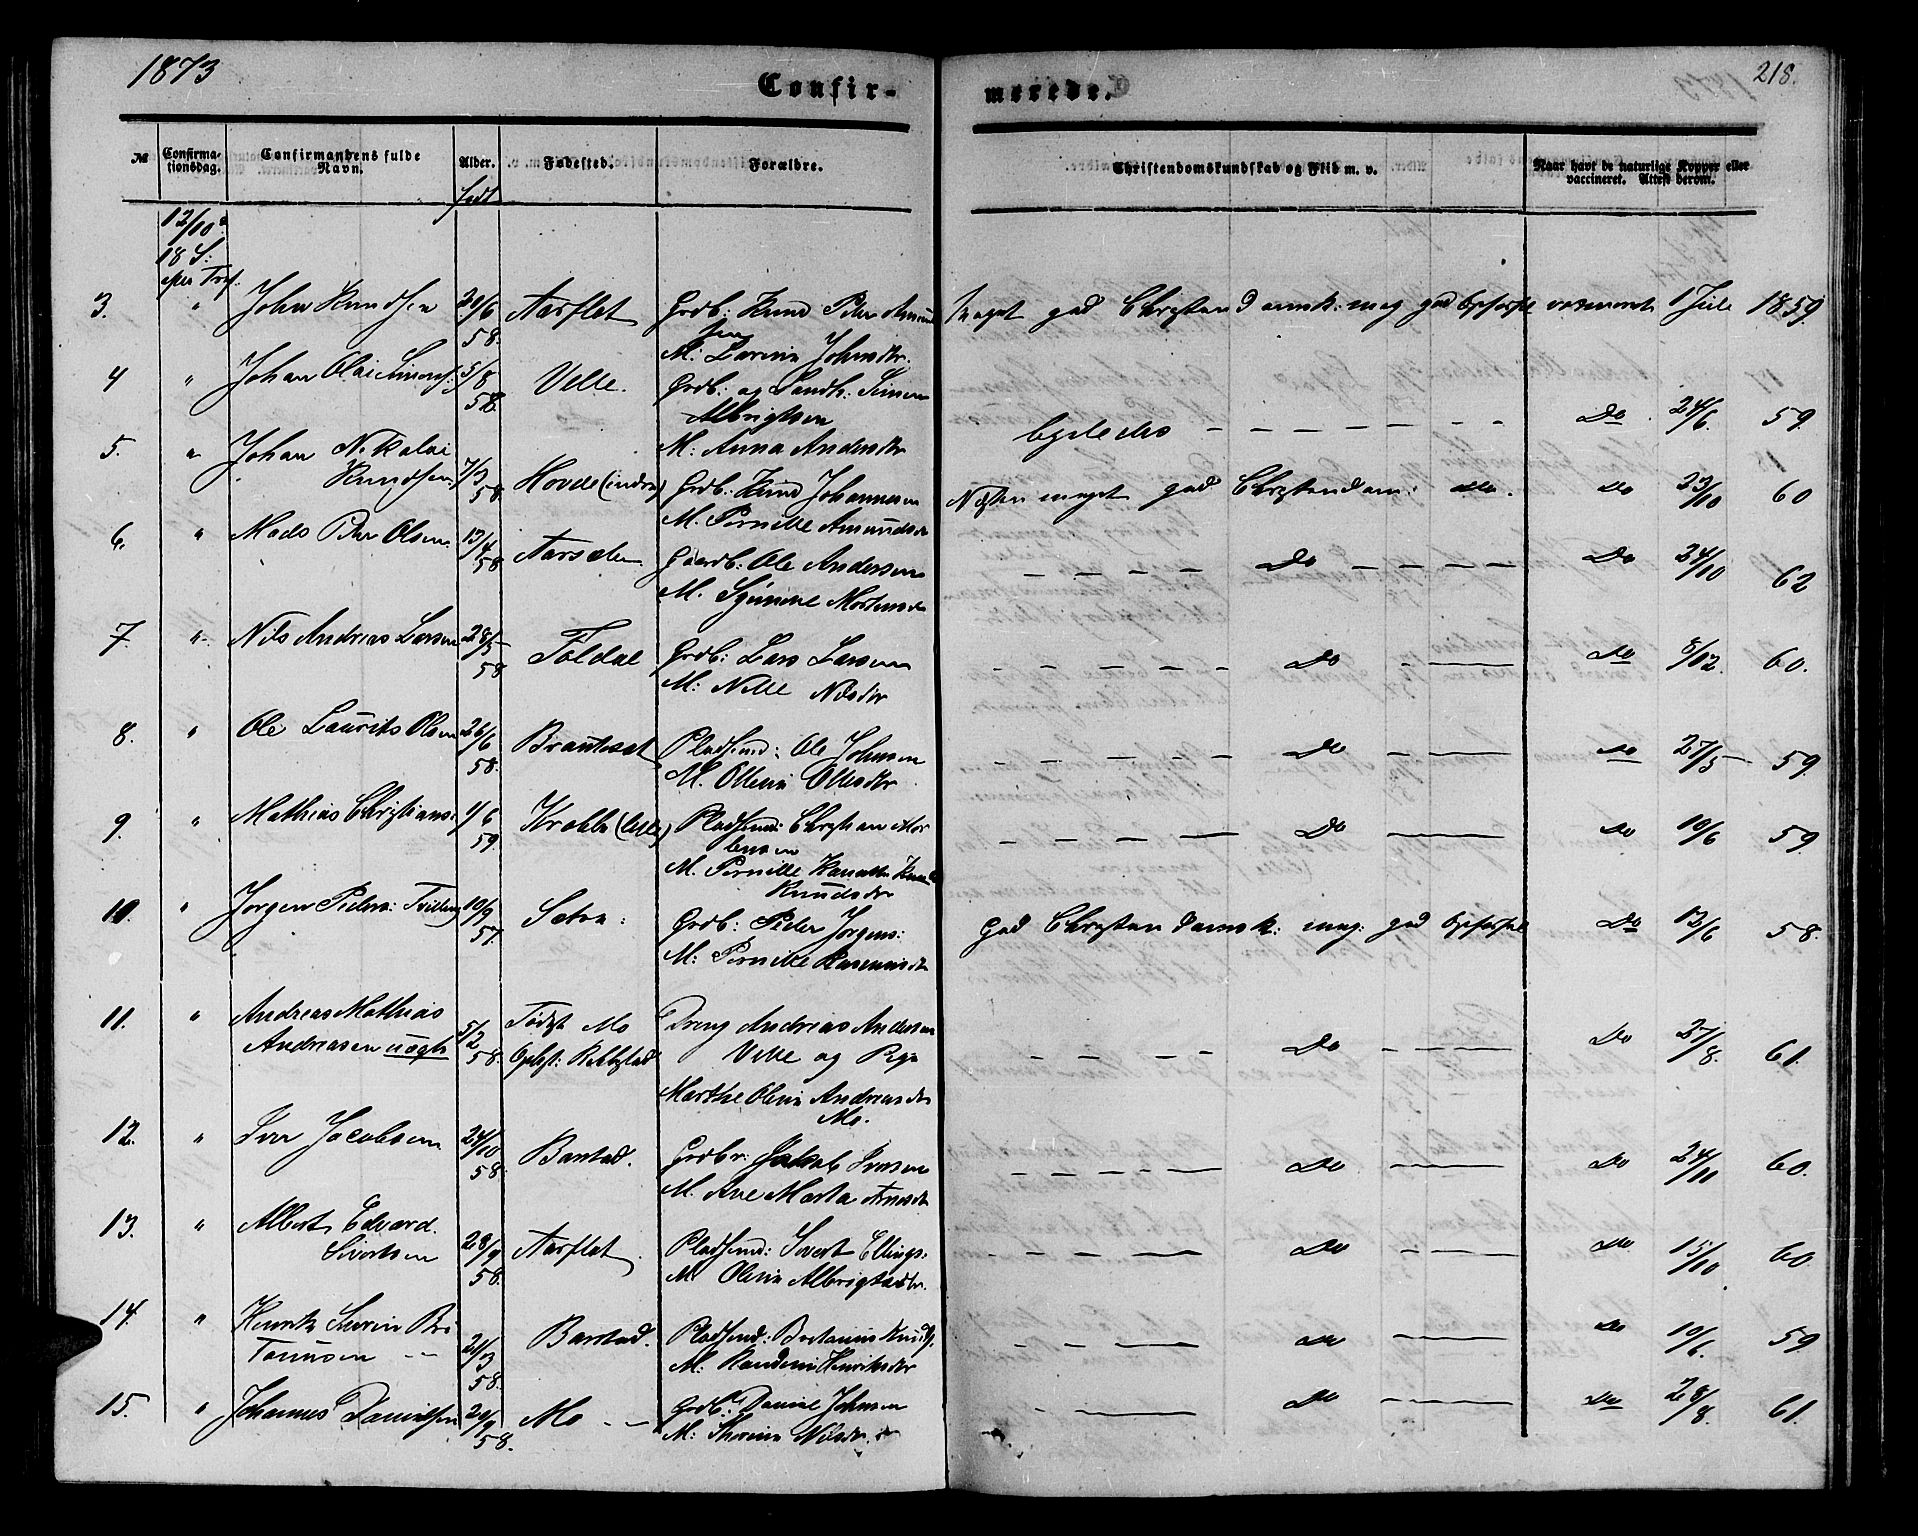 1873
218.
Confir-
merede.
№ Confirma-tionsdag. Confirmandens fulde Navn. Alder. Fødested. Forældre. Christendomskundskab og Flid m. v. Naar havt de naturlige Kopper eller vaccineret. Attest derom.
født
12/10
18 S:
efter Tref:
3. " John Knudsen 20/6 58. Aarflot Grdb: Knud Peter Amund
sen
M: Larine Johnsdtr. Meget god Christendomsk: meg god Opførsel vaccineret 1 Juli 1859.
4 " Johan Olai Simons: 5/8 58. Velle. Grdb: og Landh: Simon
Albrigtsen
M: Anna Andersdtr ligeledes – – – – Do 24/6. 59.
5. " Johan Nikolai
Knudsen 7/3 58. Hovde (indre) Grdb: Knud Johannesen
M. Pernille Amundsdr Næsten meget god Christendom: do. Do 23/10 60
6. " Mads Peter Olsen 13/4 58 Aarsæten Gaardb: Ole Andersen
M. Mortensdr – – – – Do Do 24/10 62
7. " Nils Andreas Larsen 28/5 58 Foldal Grdb: Lars Larsen
M: Nille Nilsdtr – – – – Do Do 8/12. 60.
8. " Ole Laurits Olsen 26/6 58. Brauteset Pladsmd: Ole Johnsen
M. Oline Olesdtr – – – – Do do 27/5 59.
9. " Mathias Christians: 1/6 59. Krabbe (lille) Pladsmd: Christian Mor
tensen
M. Pernille
Knudsdr – – – – Do Do 10/6 59.
10. " Jørgen Peders: Tvilling 10/9 57. Sætre: Grdb: Peder Jørgens:
M: Pernille Rasmusdr God Christendomsk: meg: god Opførsel Do 13/6 58.
11. " Andreas Mathias
Andreasen uægte 5/2 58. Fødest Mo
Opfst: Dreng Andreas Andersen
Velle og Pige
Marthe Oline Andreasdr
Mo. – – – – Do Do 27/8. 61.
12. " Iver Jacobsen 24/10 58. Barstad. Grdbr: Jakob Iversen
M. Ane Marta – – – – Do Do 24/10 60.
13. " Albert Edvard
Sivertsen 28/9 58. Aarflot. Pladsmd: Sivert Ellings:
M. Oline Albrigtsdtr. – – – – Do Do 15/10 60.
14. " Henrik Severin Be
Tonusen – – 21/3 58. Barstad. Pladsmd: Knuds.
M. Randine Henriksdtr – – Do Do 10/6. 59
15. " Johannes Danielsen 29/9 58. Mo – – Grdb: Daniel Johnsen
M: Nilsdtr – – Do Do 28/8. 61.